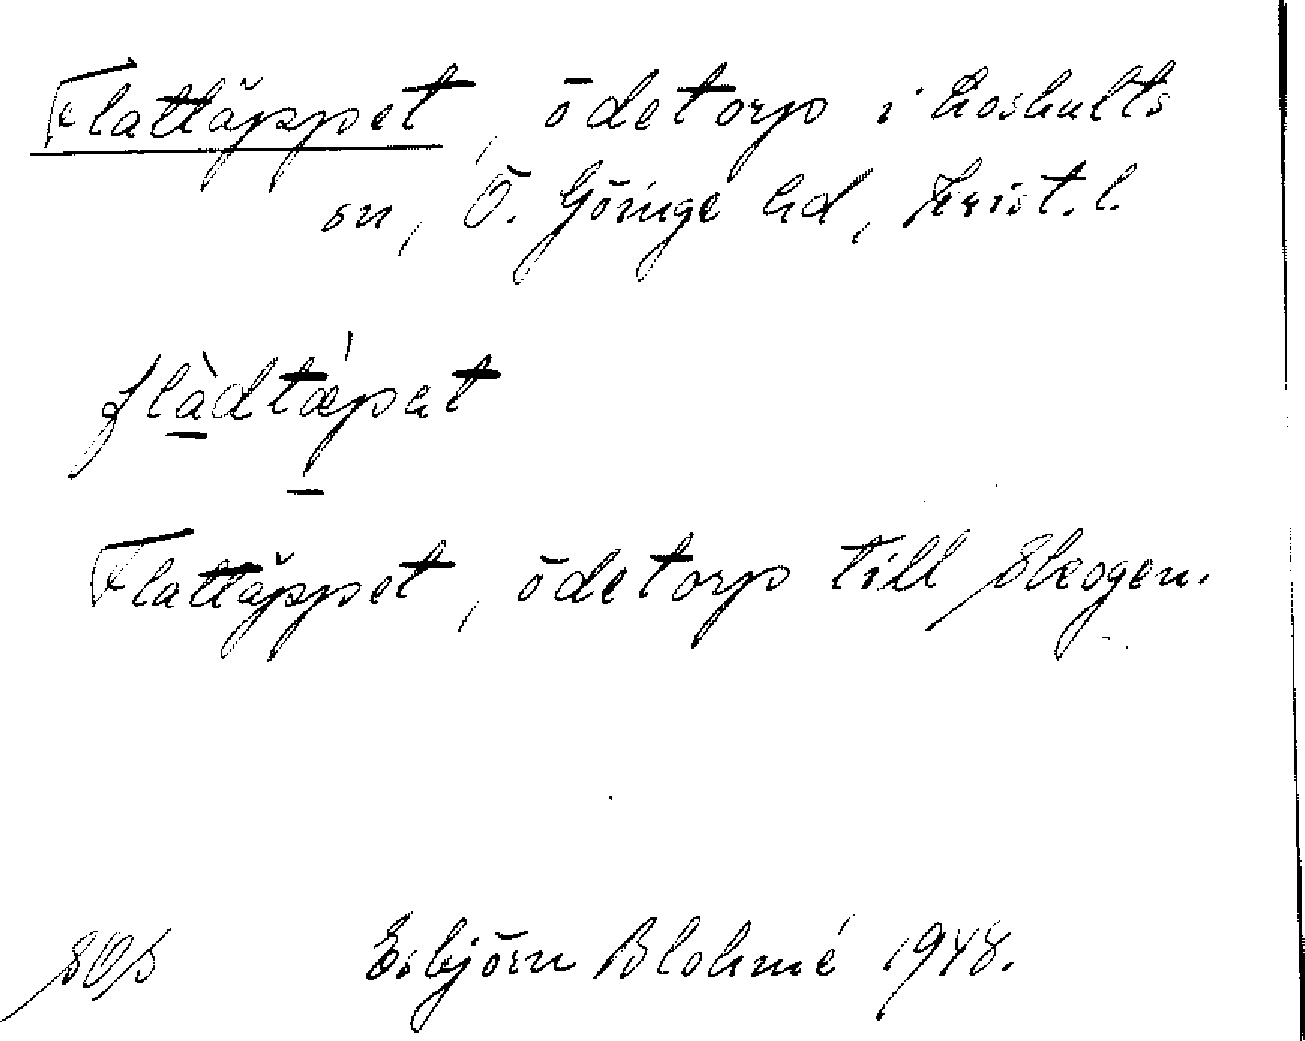 Flattäppet, ödetorp i Loshults
sn, Ö. Göinge hd, Krist. l.
Flattäppet, ödetorp till Skogen.
Esbjörn Blohmé 1948.